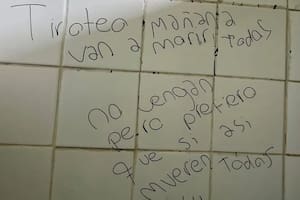 Tiroteo Mañana
van a morir Todas
no vengan
pero prefiero
que si asi
mueren Todas